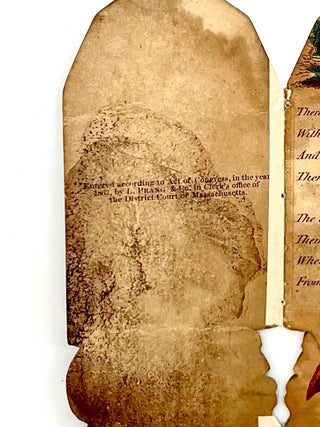 Entered according to Act of Congress, in the year
by L. PRANG & Co. in Clerk's office of
the District Court of Massachusetts.
With
And
When
From